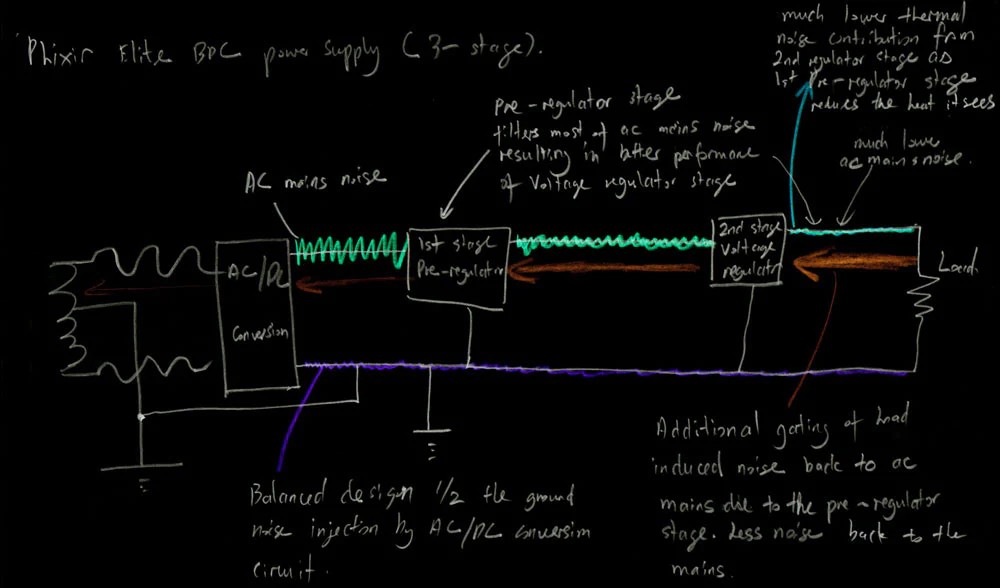 Phixir Elite BPC power supply (3-stage).
much lower thermal
noise contribution from
2nd regulator stage as
1st Pre-regulator stage
reduces the heat it sees
Pre-regulator stage
filters most of ac mains noise
resulting in better performance
of Voltage regulator stage
much lower
ac mains noise.
AC mains noise
AC/DC
Conversion
1st stage
Pre-regulator
2nd stage
Voltage
regulator
Load
Balanced design 1/2 the ground
noise injection by AC/DC conversion
circuit.
Additional gating of load
induced noise back to ac
mains due to the pre-regulator
stage. Less noise back to the
mains.